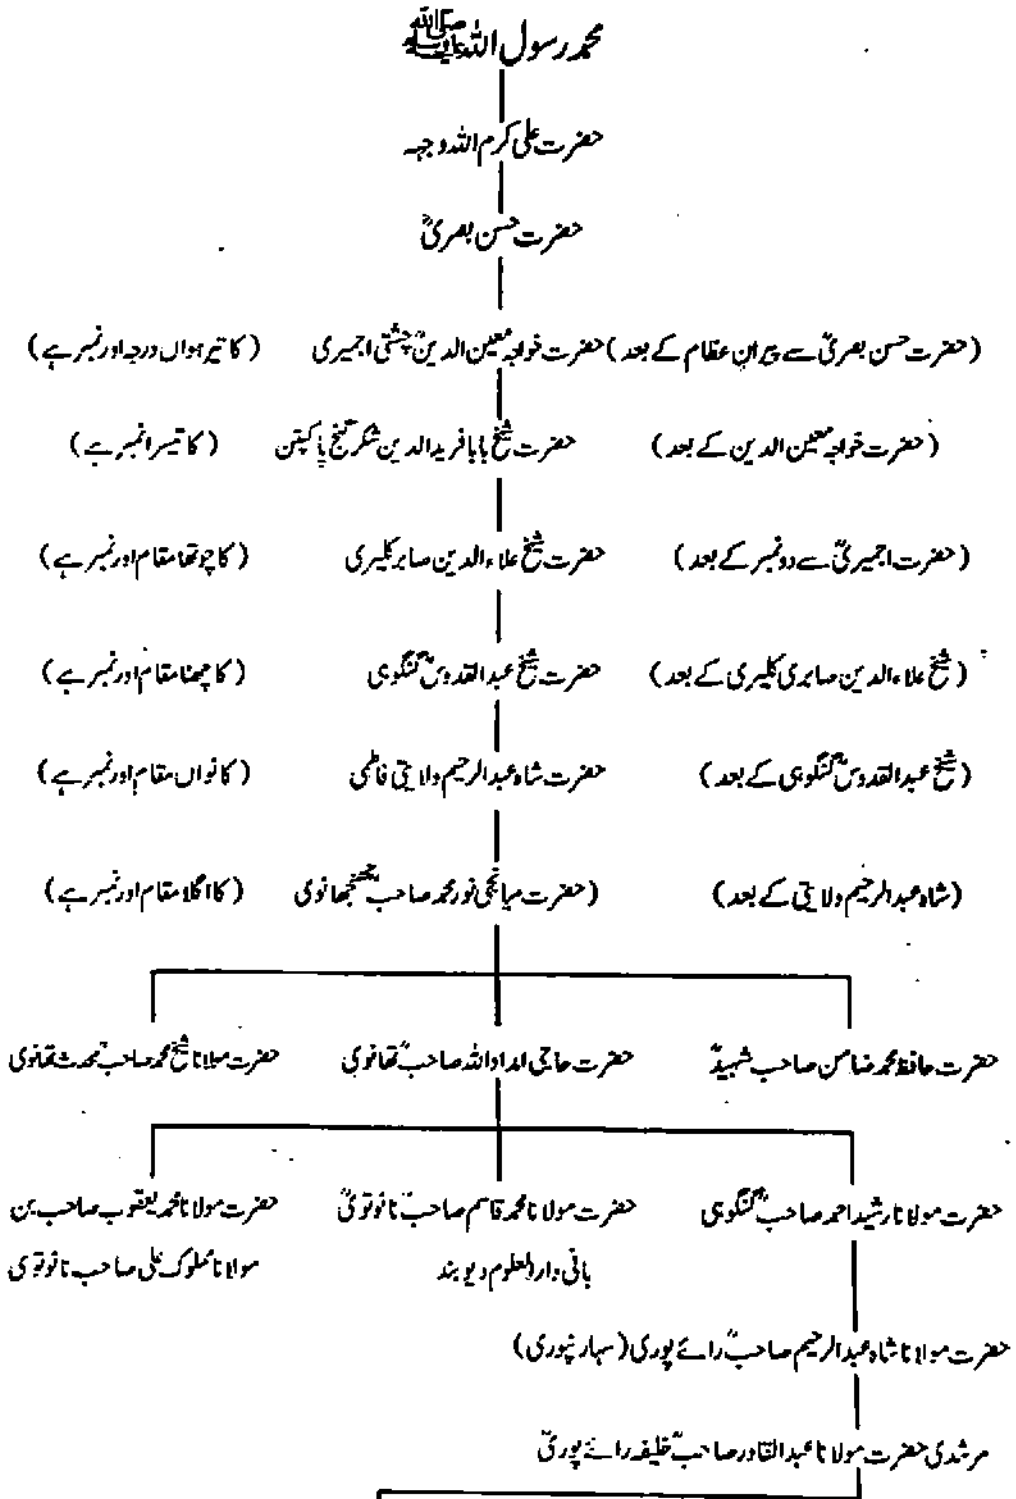 محمد رسول اللہ ﷺ
حضرت علی کرم اللہ وجہہ
حضرت حسن بصریؒ
(حضرت حسن بصریؒ سے پیران عظام کے بعد) حضرت خواجہ معین الدینؒ چشتی اجمیری (کا تیرہواں درجہ اور نمبر ہے)
(حضرت خواجہ معین الدین کے بعد) حضرت شیخ بابا فرید الدین شکر گنج پاکپتن (کا تیسرا نمبر ہے)
(حضرت اجمیریؒ سے دو نمبر کے بعد) حضرت شیخ علاءالدین صابر کلیری (کا چوتھا مقام اور نمبر ہے)
(شیخ علاءالدین صابری کلیری کے بعد) حضرت شیخ عبدالقدوسؒ گنگوہی (کا چھٹا مقام اور نمبر ہے)
(شیخ عبدالقدوسؒ گنگوہی کے بعد) حضرت شاہ عبدالرحیم ولایتی فاطمی (کا نواں مقام اور نمبر ہے)
(شاہ عبدالرحیم ولایتی کے بعد) (حضرت میانجی نور محمد صاحب جھنجھانوی (کا اگلا مقام اور نمبر ہے)
حضرت حافظ محمد ضامن صاحب شہیدؒ حضرت حاجی امداد اللہ صاحبؒ تھانوی حضرت مولانا شیخ محمد صاحبؒ محدث تھانوی
حضرت مولانا رشید احمد صاحبؒ گنگوہی حضرت مولانا محمد قاسم صاحبؒ نانوتویؒ حضرت مولانا محمد یعقوب صاحب بن
بانی دارالعلوم دیوبند مولانا مملوک علی صاحب نانوتوی
حضرت مولانا شاہ عبدالرحیم صاحبؒ رائے پوری (سہارنپوری)
مرشدی حضرت مولانا عبدالقادر صاحبؒ خلیفہ رائے پوریؒ